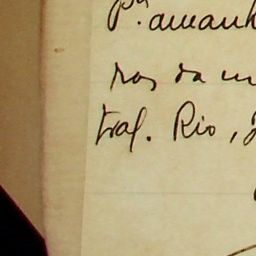 Pa. amanh
nos da m
tral. Rio, 2